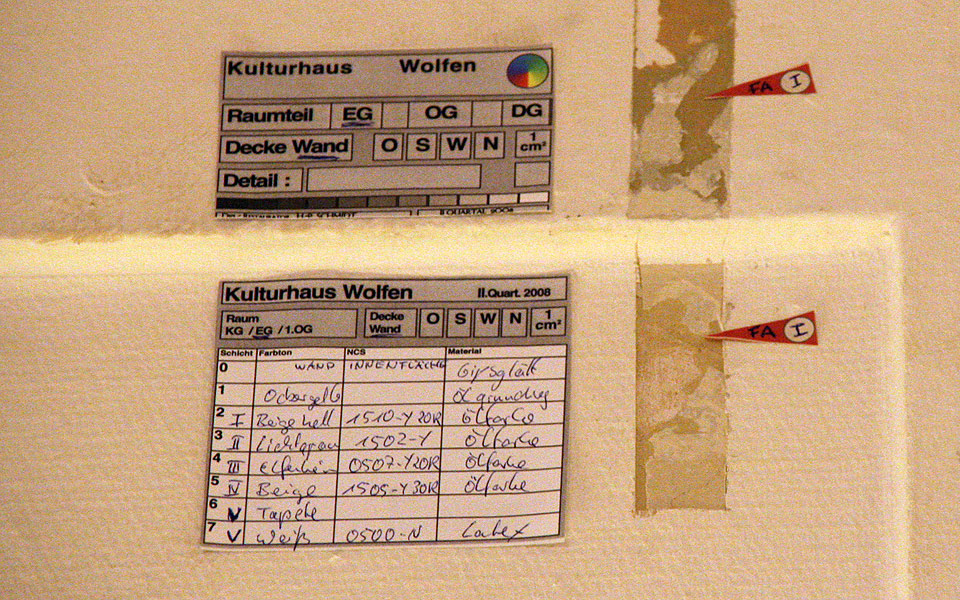 Kulturhaus Wolfen
Raumteil EG OG DG
Decke Wand O S W N 1 cm²
Detail :
FA I
Kulturhaus Wolfen II.Quart. 2008
Raum Decke O S W N 1 cm²
KG / EG / 1.OG Wand
FA I
Schicht Farbton NCS Material
0 WAND INNENFLÄCHE Gipsglätt
1 Ockergelb Öl grundierung
2 I Beige hell 1510-Y20R Ölfarbe
3 II Lichtgrau 1502-Y Ölfarbe
4 III Elfenbein 0507-Y20R Ölfarbe
5 IV Beige 1505-Y30R Ölfarbe
6 V Tapete
7 V weiß 0500-N Latex